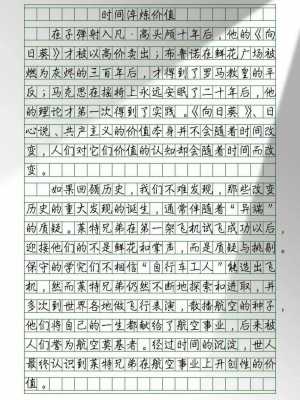 时间淬炼价值
在子弹射入凡·高头颅十年后，他的《向
日葵》才被以高价卖出；布鲁诺在鲜花广场被
燃为灰烬的三百年后，才得到了罗马教皇的平
反；马克思在摇椅上永远安眠了二十年后，他
的理论才第一次得到了实践。《向日葵》、日
心说、共产主义的价值本身并不会随着时间改
变，人们对它们价值的认知却会随着时间而改
变。
如果回顾历史，我们不难发现，那些改变
历史的重大发现的诞生，通常伴随着“异端”
的质疑。莱特兄弟在第一架飞机试飞成功以后，
迎接他们的不是鲜花和掌声，而是质疑与挑剔。
保守的学究们不相信“自行车工人”能造出飞
机，然而莱特兄弟仍然不断地探索和进取，并
多次到世界各地做飞行表演，散播航空的种子。
他们将自己的一生都献给了航空事业，后来被
人们誉为航空奠基者。经过时间的沉淀，世人
最终认识到莱特兄弟在航空事业上开创性的价
值。